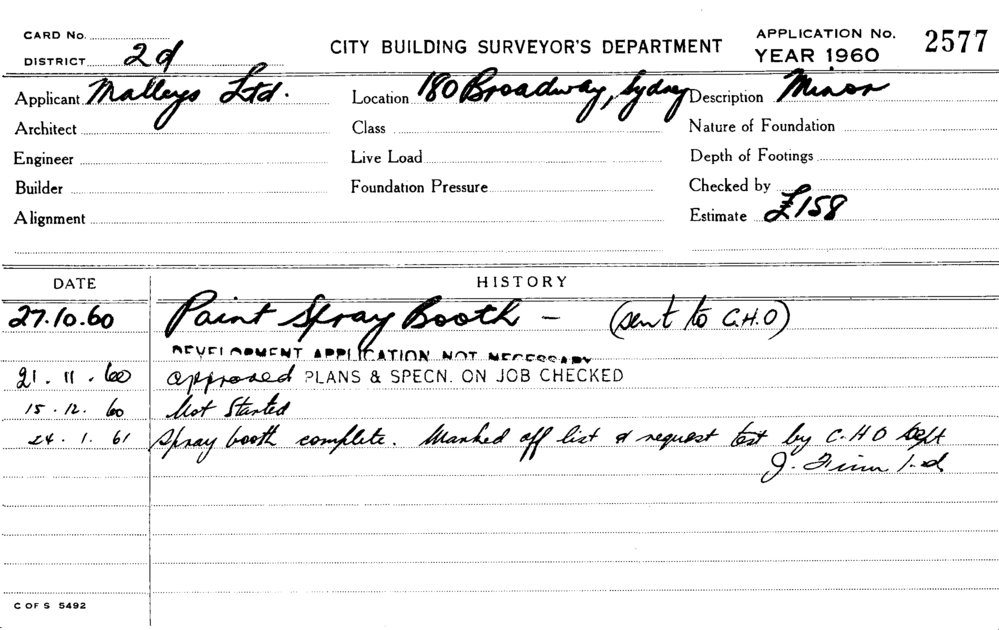 CARD No.
DISTRICT 2d
CITY BUILDING SURVEYOR'S DEPARTMENT
APPLICATION No. 2577
YEAR 1960
Applicant Malleys Ltd. Location 180 Broadway, Sydney Description Minor
Architect Class Nature of Foundation
Engineer Live Load Depth of Footings
Builder Foundation Pressure Checked by
Alignment Estimate £158
DATE HISTORY
27.10.60 Paint Spray Booth - (sent to C.H.O)
DEVELOPMENT APPLICATION NOT NECESSARY
21.11.60 approved PLANS & SPECN. ON JOB CHECKED
15.12.60 Not Started
24.1.61 Spray booth complete. Marked off list & request test by C.H.O Dept
J. Finn
C OF S 5492